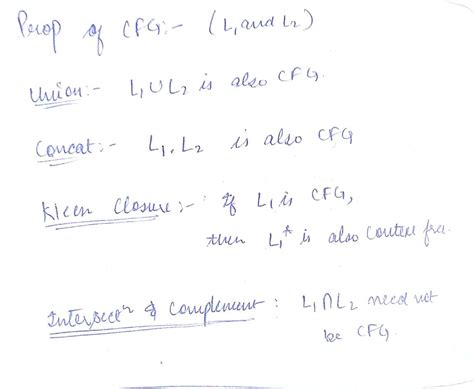 Prop of CFG:- (L₁ and L₂)
Union:- L₁ ∪ L₂ is also CFG.
Concat:- L₁ . L₂ is also CFG
Kleen Closure:- If L₁ is CFG,
then L₁* is also context free.
Intersectⁿ & Complement : L₁ ∩ L₂ need not
be CFG.